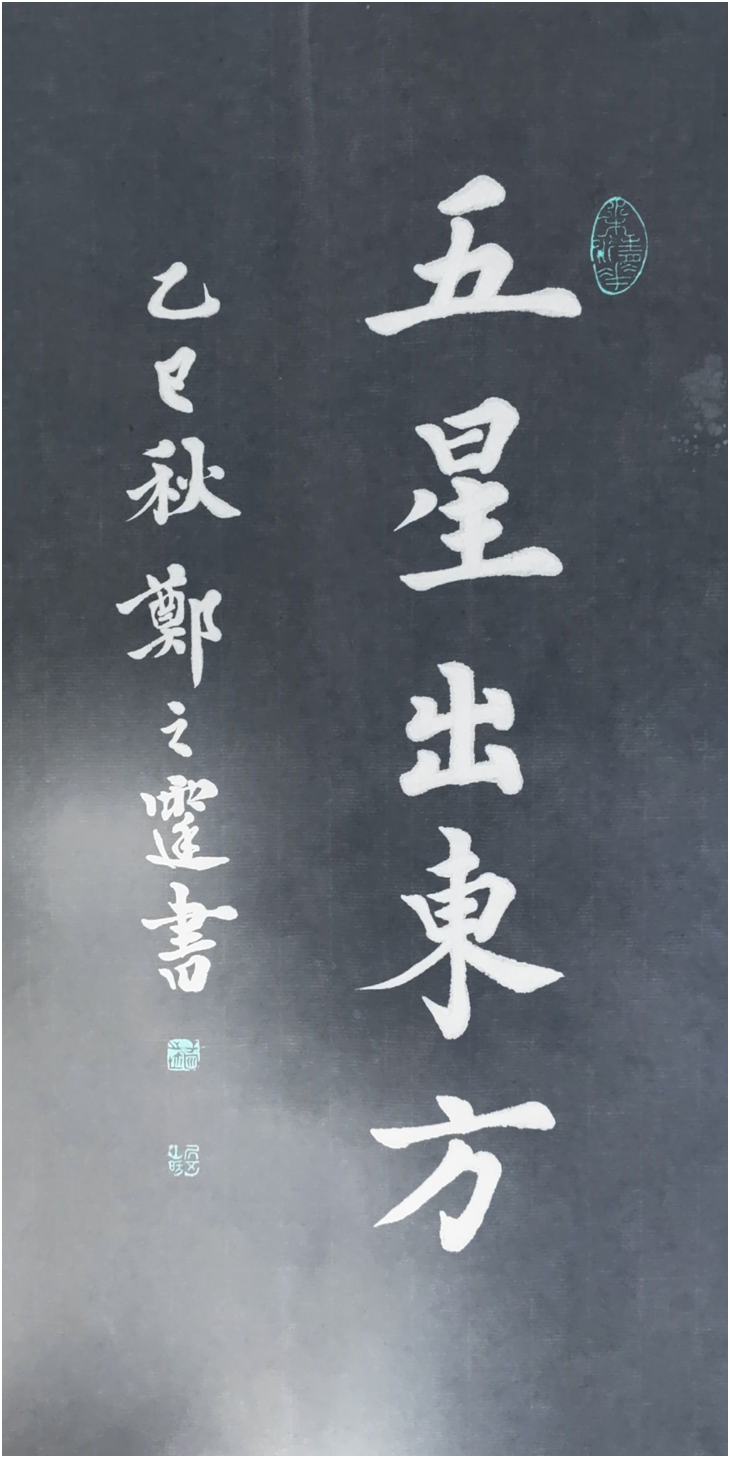 五星出東方
乙巳秋鄭之霆書